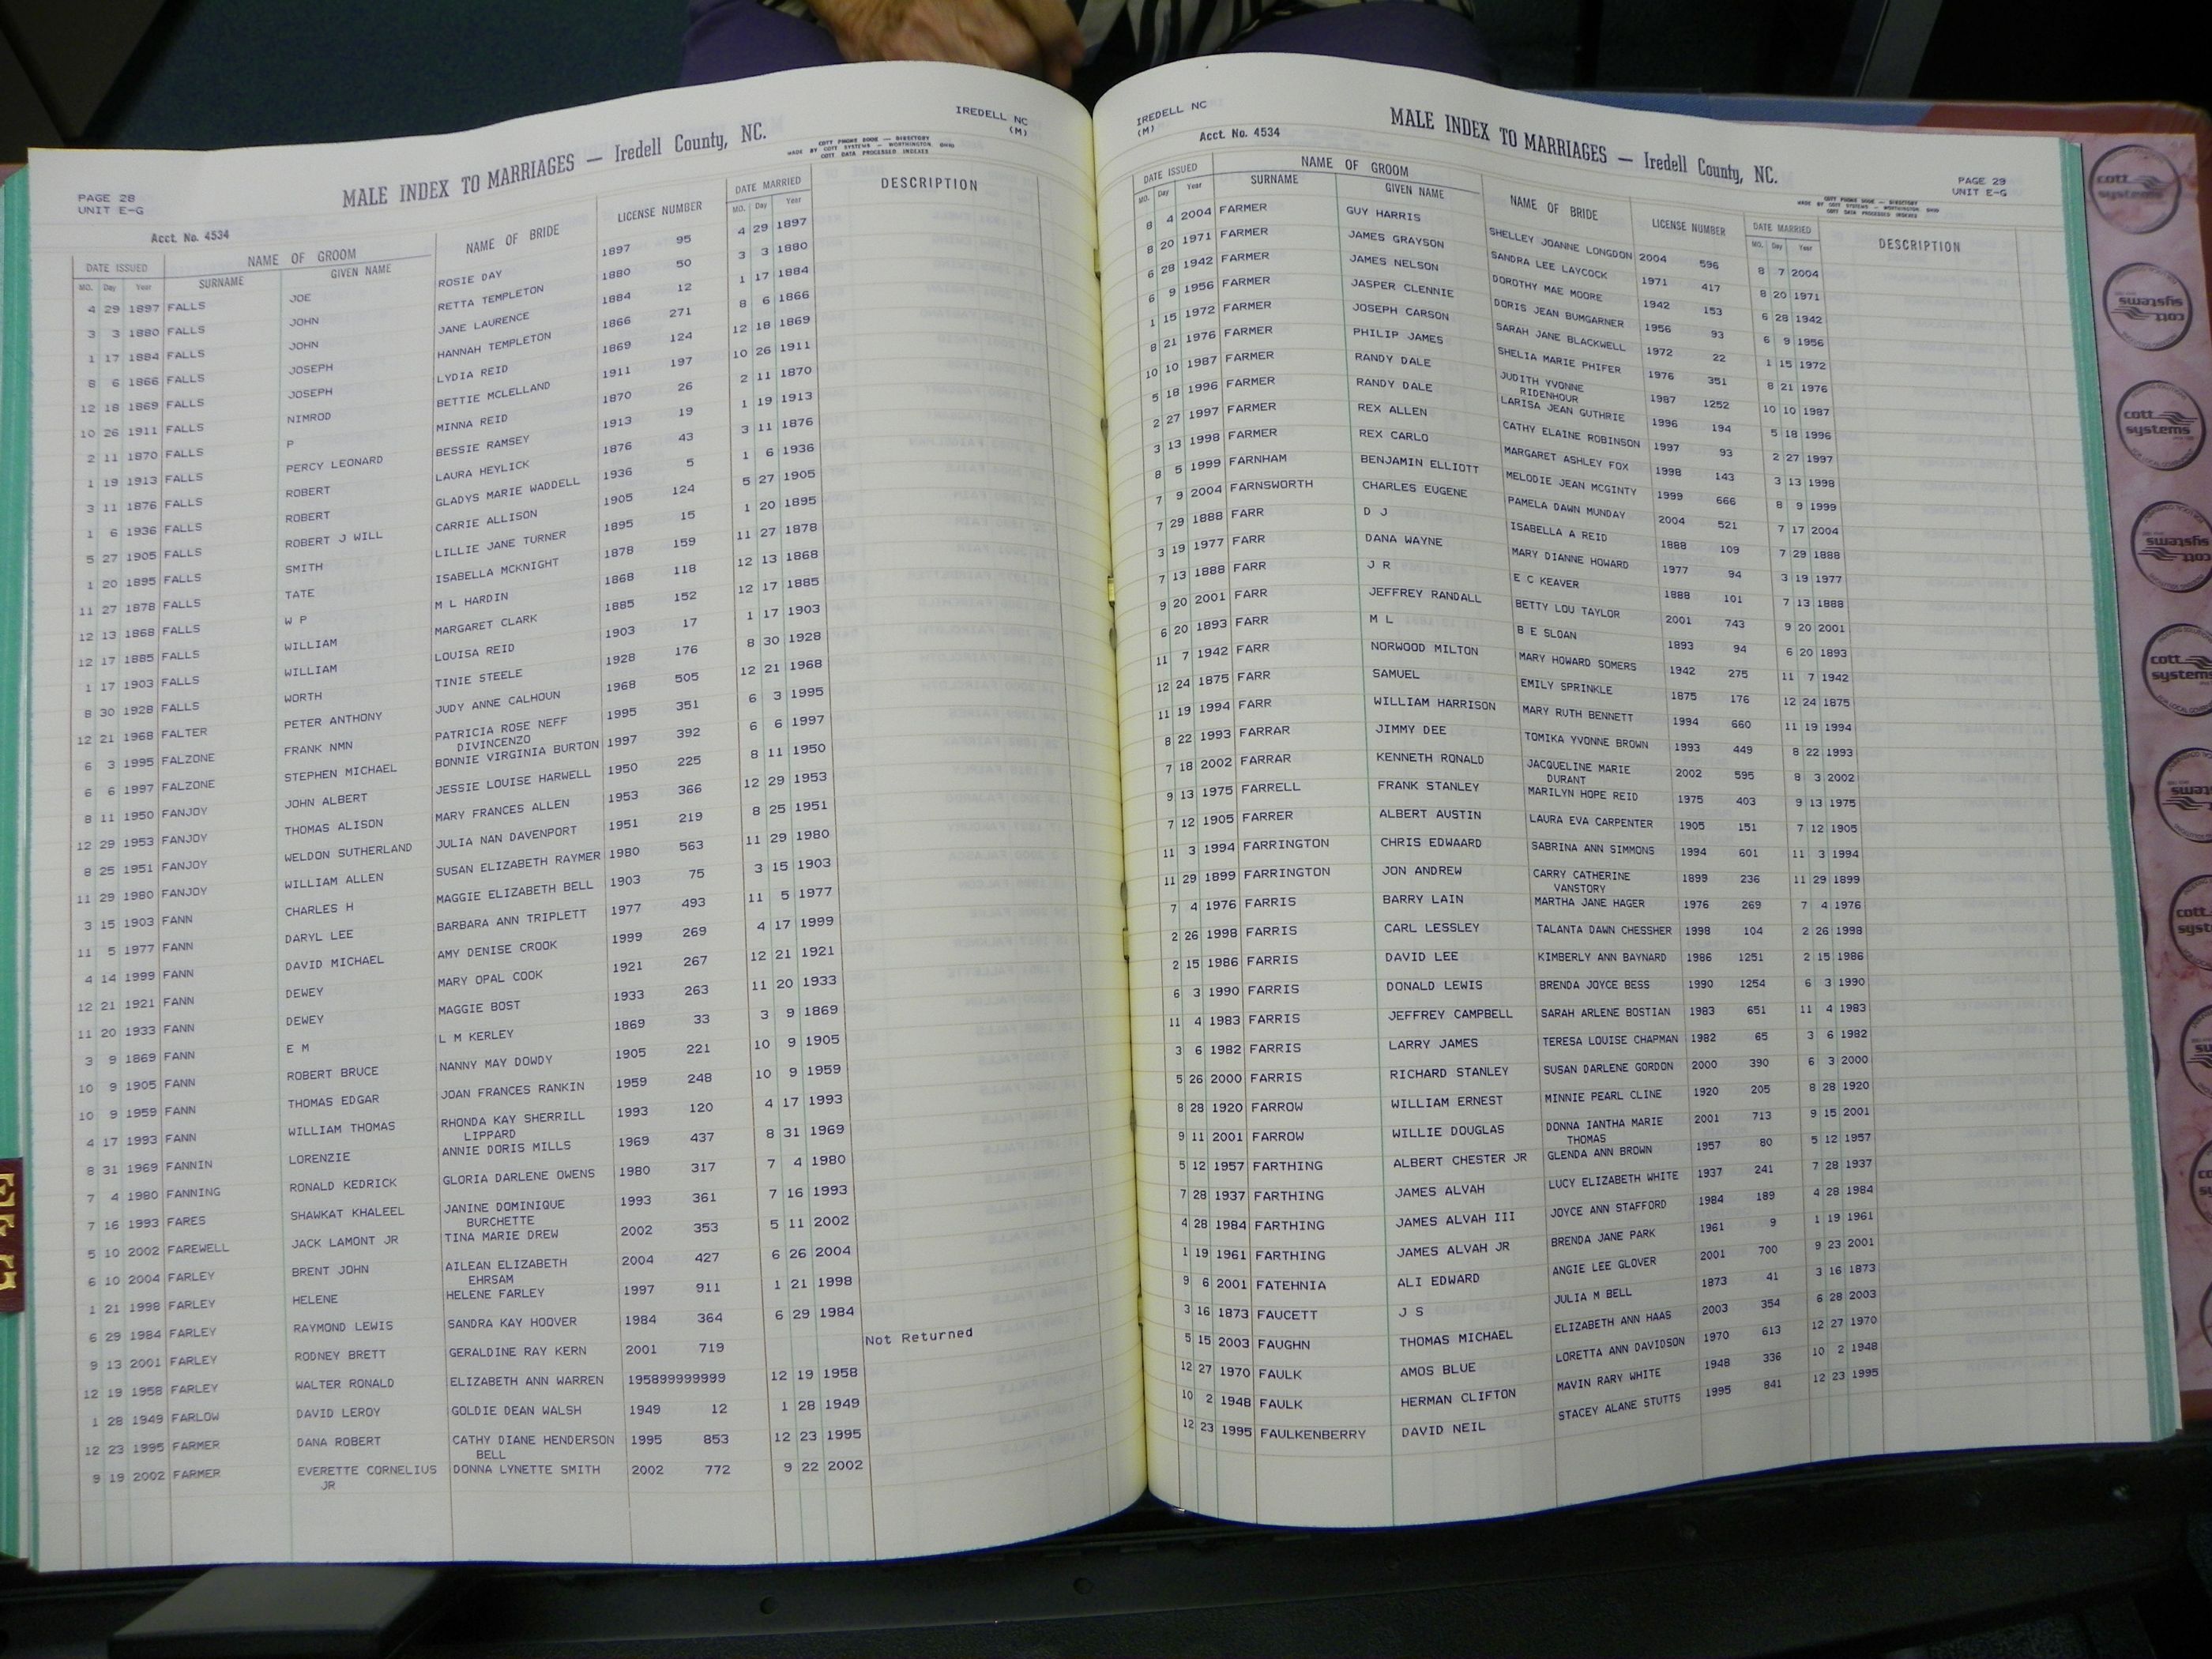 PAGE 28
UNIT E-G
MALE INDEX TO MARRIAGES — Iredell County, NC.
COTT PHONE BOOK — DIRECTORY
MADE BY COTT SYSTEMS — WORTHINGTON, OHIO
COTT DATA PROCESSED INDEXES
IREDELL NC
(M)
Acct. No. 4534
DATE ISSUED NAME OF GROOM NAME OF BRIDE LICENSE NUMBER DATE MARRIED DESCRIPTION
MO. Day Year SURNAME GIVEN NAME MO. Day Year
4 29 1897 FALLS JOE ROSIE DAY 1897 95 4 29 1897
3 3 1880 FALLS JOHN RETTA TEMPLETON 1880 50 3 3 1880
1 17 1884 FALLS JOHN JANE LAURENCE 1884 12 1 17 1884
8 6 1866 FALLS JOSEPH HANNAH TEMPLETON 1866 271 8 6 1866
12 18 1869 FALLS JOSEPH LYDIA REID 1869 124 12 18 1869
10 26 1911 FALLS NIMROD BETTIE MCLELLAND 1911 197 10 26 1911
2 11 1870 FALLS P MINNA REID 1870 26 2 11 1870
1 19 1913 FALLS PERCY LEONARD BESSIE RAMSEY 1913 19 1 19 1913
3 11 1876 FALLS ROBERT LAURA HEYLICK 1876 43 3 11 1876
1 6 1936 FALLS ROBERT GLADYS MARIE WADDELL 1936 5 1 6 1936
5 27 1905 FALLS ROBERT J WILL CARRIE ALLISON 1905 124 5 27 1905
1 20 1895 FALLS SMITH LILLIE JANE TURNER 1895 15 1 20 1895
11 27 1878 FALLS TATE ISABELLA MCKNIGHT 1878 159 11 27 1878
12 13 1868 FALLS W P M L HARDIN 1868 118 12 13 1868
12 17 1885 FALLS WILLIAM MARGARET CLARK 1885 152 12 17 1885
1 17 1903 FALLS WILLIAM LOUISA REID 1903 17 1 17 1903
8 30 1928 FALLS WORTH TINIE STEELE 1928 176 8 30 1928
12 21 1968 FALTER PETER ANTHONY JUDY ANNE CALHOUN 1968 505 12 21 1968
6 3 1995 FALZONE FRANK NMN PATRICIA ROSE NEFF 1995 351 6 3 1995
DIVINCENZO
6 6 1997 FALZONE STEPHEN MICHAEL BONNIE VIRGINIA BURTON 1997 392 6 6 1997
8 11 1950 FANJOY JOHN ALBERT JESSIE LOUISE HARWELL 1950 225 8 11 1950
12 29 1953 FANJOY THOMAS ALISON MARY FRANCES ALLEN 1953 366 12 29 1953
8 25 1951 FANJOY WELDON SUTHERLAND JULIA NAN DAVENPORT 1951 219 8 25 1951
11 29 1980 FANJOY WILLIAM ALLEN SUSAN ELIZABETH RAYMER 1980 563 11 29 1980
3 15 1903 FANN CHARLES H MAGGIE ELIZABETH BELL 1903 75 3 15 1903
11 5 1977 FANN DARYL LEE BARBARA ANN TRIPLETT 1977 493 11 5 1977
4 14 1999 FANN DAVID MICHAEL AMY DENISE CROOK 1999 269 4 17 1999
12 21 1921 FANN DEWEY MARY OPAL COOK 1921 267 12 21 1921
11 20 1933 FANN DEWEY MAGGIE BOST 1933 263 11 20 1933
3 9 1869 FANN E M L M KERLEY 1869 33 3 9 1869
10 9 1905 FANN ROBERT BRUCE NANNY MAY DOWDY 1905 221 10 9 1905
10 9 1959 FANN THOMAS EDGAR JOAN FRANCES RANKIN 1959 248 10 9 1959
4 17 1993 FANN WILLIAM THOMAS RHONDA KAY SHERRILL 1993 120 4 17 1993
LIPPARD
8 31 1969 FANNIN LORENZIE ANNIE DORIS MILLS 1969 437 8 31 1969
7 4 1980 FANNING RONALD KEDRICK GLORIA DARLENE OWENS 1980 317 7 4 1980
7 16 1993 FARES SHAWKAT KHALEEL JANINE DOMINIQUE 1993 361 7 16 1993
BURCHETTE
5 10 2002 FAREWELL JACK LAMONT JR TINA MARIE DREW 2002 353 5 11 2002
6 10 2004 FARLEY BRENT JOHN AILEAN ELIZABETH 2004 427 6 26 2004
EHRSAM
1 21 1998 FARLEY HELENE HELENE FARLEY 1997 911 1 21 1998
6 29 1984 FARLEY RAYMOND LEWIS SANDRA KAY HOOVER 1984 364 6 29 1984
9 13 2001 FARLEY RODNEY BRETT GERALDINE RAY KERN 2001 719 Not Returned
12 19 1958 FARLEY WALTER RONALD ELIZABETH ANN WARREN 195899999999 12 19 1958
1 28 1949 FARLOW DAVID LEROY GOLDIE DEAN WALSH 1949 12 1 28 1949
12 23 1995 FARMER DANA ROBERT CATHY DIANE HENDERSON 1995 853 12 23 1995
BELL
9 19 2002 FARMER EVERETTE CORNELIUS DONNA LYNETTE SMITH 2002 772 9 22 2002
JR
IREDELL NC
(M)
Acct. No. 4534
MALE INDEX TO MARRIAGES — Iredell County, NC.
COTT PHONE BOOK — DIRECTORY
MADE BY COTT SYSTEMS — WORTHINGTON, OHIO
COTT DATA PROCESSED INDEXES
PAGE 29
UNIT E-G
DATE ISSUED NAME OF GROOM NAME OF BRIDE LICENSE NUMBER DATE MARRIED DESCRIPTION
MO. Day Year SURNAME GIVEN NAME MO. Day Year
8 4 2004 FARMER GUY HARRIS SHELLEY JOANNE LONGDON 2004 596 8 7 2004
8 20 1971 FARMER JAMES GRAYSON SANDRA LEE LAYCOCK 1971 417 8 20 1971
6 28 1942 FARMER JAMES NELSON DOROTHY MAE MOORE 1942 153 6 28 1942
6 9 1956 FARMER JASPER CLENNIE DORIS JEAN BUMGARNER 1956 93 6 9 1956
1 15 1972 FARMER JOSEPH CARSON SARAH JANE BLACKWELL 1972 22 1 15 1972
8 21 1976 FARMER PHILIP JAMES SHELIA MARIE PHIFER 1976 351 8 21 1976
10 10 1987 FARMER RANDY DALE JUDITH YVONNE 1987 1252 10 10 1987
RIDENHOUR
5 18 1996 FARMER RANDY DALE LARISA JEAN GUTHRIE 1996 194 5 18 1996
2 27 1997 FARMER REX ALLEN CATHY ELAINE ROBINSON 1997 93 2 27 1997
3 13 1998 FARMER REX CARLO MARGARET ASHLEY FOX 1998 143 3 13 1998
8 5 1999 FARNHAM BENJAMIN ELLIOTT MELODIE JEAN MCGINTY 1999 666 8 9 1999
7 9 2004 FARNSWORTH CHARLES EUGENE PAMELA DAWN MUNDAY 2004 521 7 17 2004
7 29 1888 FARR D J ISABELLA A REID 1888 109 7 29 1888
3 19 1977 FARR DANA WAYNE MARY DIANNE HOWARD 1977 94 3 19 1977
7 13 1888 FARR J R E C KEAVER 1888 101 7 13 1888
9 20 2001 FARR JEFFREY RANDALL BETTY LOU TAYLOR 2001 743 9 20 2001
6 20 1893 FARR M L B E SLOAN 1893 94 6 20 1893
11 7 1942 FARR NORWOOD MILTON MARY HOWARD SOMERS 1942 275 11 7 1942
12 24 1875 FARR SAMUEL EMILY SPRINKLE 1875 176 12 24 1875
11 19 1994 FARR WILLIAM HARRISON MARY RUTH BENNETT 1994 660 11 19 1994
8 22 1993 FARRAR JIMMY DEE TOMIKA YVONNE BROWN 1993 449 8 22 1993
7 18 2002 FARRAR KENNETH RONALD JACQUELINE MARIE 2002 595 8 3 2002
DURANT
9 13 1975 FARRELL FRANK STANLEY MARILYN HOPE REID 1975 403 9 13 1975
7 12 1905 FARRER ALBERT AUSTIN LAURA EVA CARPENTER 1905 151 7 12 1905
11 3 1994 FARRINGTON CHRIS EDWAARD SABRINA ANN SIMMONS 1994 601 11 3 1994
11 29 1899 FARRINGTON JON ANDREW CARRY CATHERINE 1899 236 11 29 1899
VANSTORY
7 4 1976 FARRIS BARRY LAIN MARTHA JANE HAGER 1976 269 7 4 1976
2 26 1998 FARRIS CARL LESSLEY TALANTA DAWN CHESSHER 1998 104 2 26 1998
2 15 1986 FARRIS DAVID LEE KIMBERLY ANN BAYNARD 1986 1251 2 15 1986
6 3 1990 FARRIS DONALD LEWIS BRENDA JOYCE BESS 1990 1254 6 3 1990
11 4 1983 FARRIS JEFFREY CAMPBELL SARAH ARLENE BOSTIAN 1983 651 11 4 1983
3 6 1982 FARRIS LARRY JAMES TERESA LOUISE CHAPMAN 1982 65 3 6 1982
5 26 2000 FARRIS RICHARD STANLEY SUSAN DARLENE GORDON 2000 390 6 3 2000
8 28 1920 FARROW WILLIAM ERNEST MINNIE PEARL CLINE 1920 205 8 28 1920
9 11 2001 FARROW WILLIE DOUGLAS DONNA IANTHA MARIE 2001 713 9 15 2001
THOMAS
5 12 1957 FARTHING ALBERT CHESTER JR GLENDA ANN BROWN 1957 80 5 12 1957
7 28 1937 FARTHING JAMES ALVAH LUCY ELIZABETH WHITE 1937 241 7 28 1937
4 28 1984 FARTHING JAMES ALVAH III JOYCE ANN STAFFORD 1984 189 4 28 1984
1 19 1961 FARTHING JAMES ALVAH JR BRENDA JANE PARK 1961 9 1 19 1961
9 6 2001 FATEHNIA ALI EDWARD ANGIE LEE GLOVER 2001 700 9 23 2001
3 16 1873 FAUCETT J S JULIA M BELL 1873 41 3 16 1873
5 15 2003 FAUGHN THOMAS MICHAEL ELIZABETH ANN HAAS 2003 354 6 28 2003
12 27 1970 FAULK AMOS BLUE LORETTA ANN DAVIDSON 1970 613 12 27 1970
10 2 1948 FAULK HERMAN CLIFTON MAVIN RARY WHITE 1948 336 10 2 1948
12 23 1995 FAULKENBERRY DAVID NEIL STACEY ALANE STUTTS 1995 841 12 23 1995
cott
systems
cott
systems
cott
systems
cott
systems
cott
systems